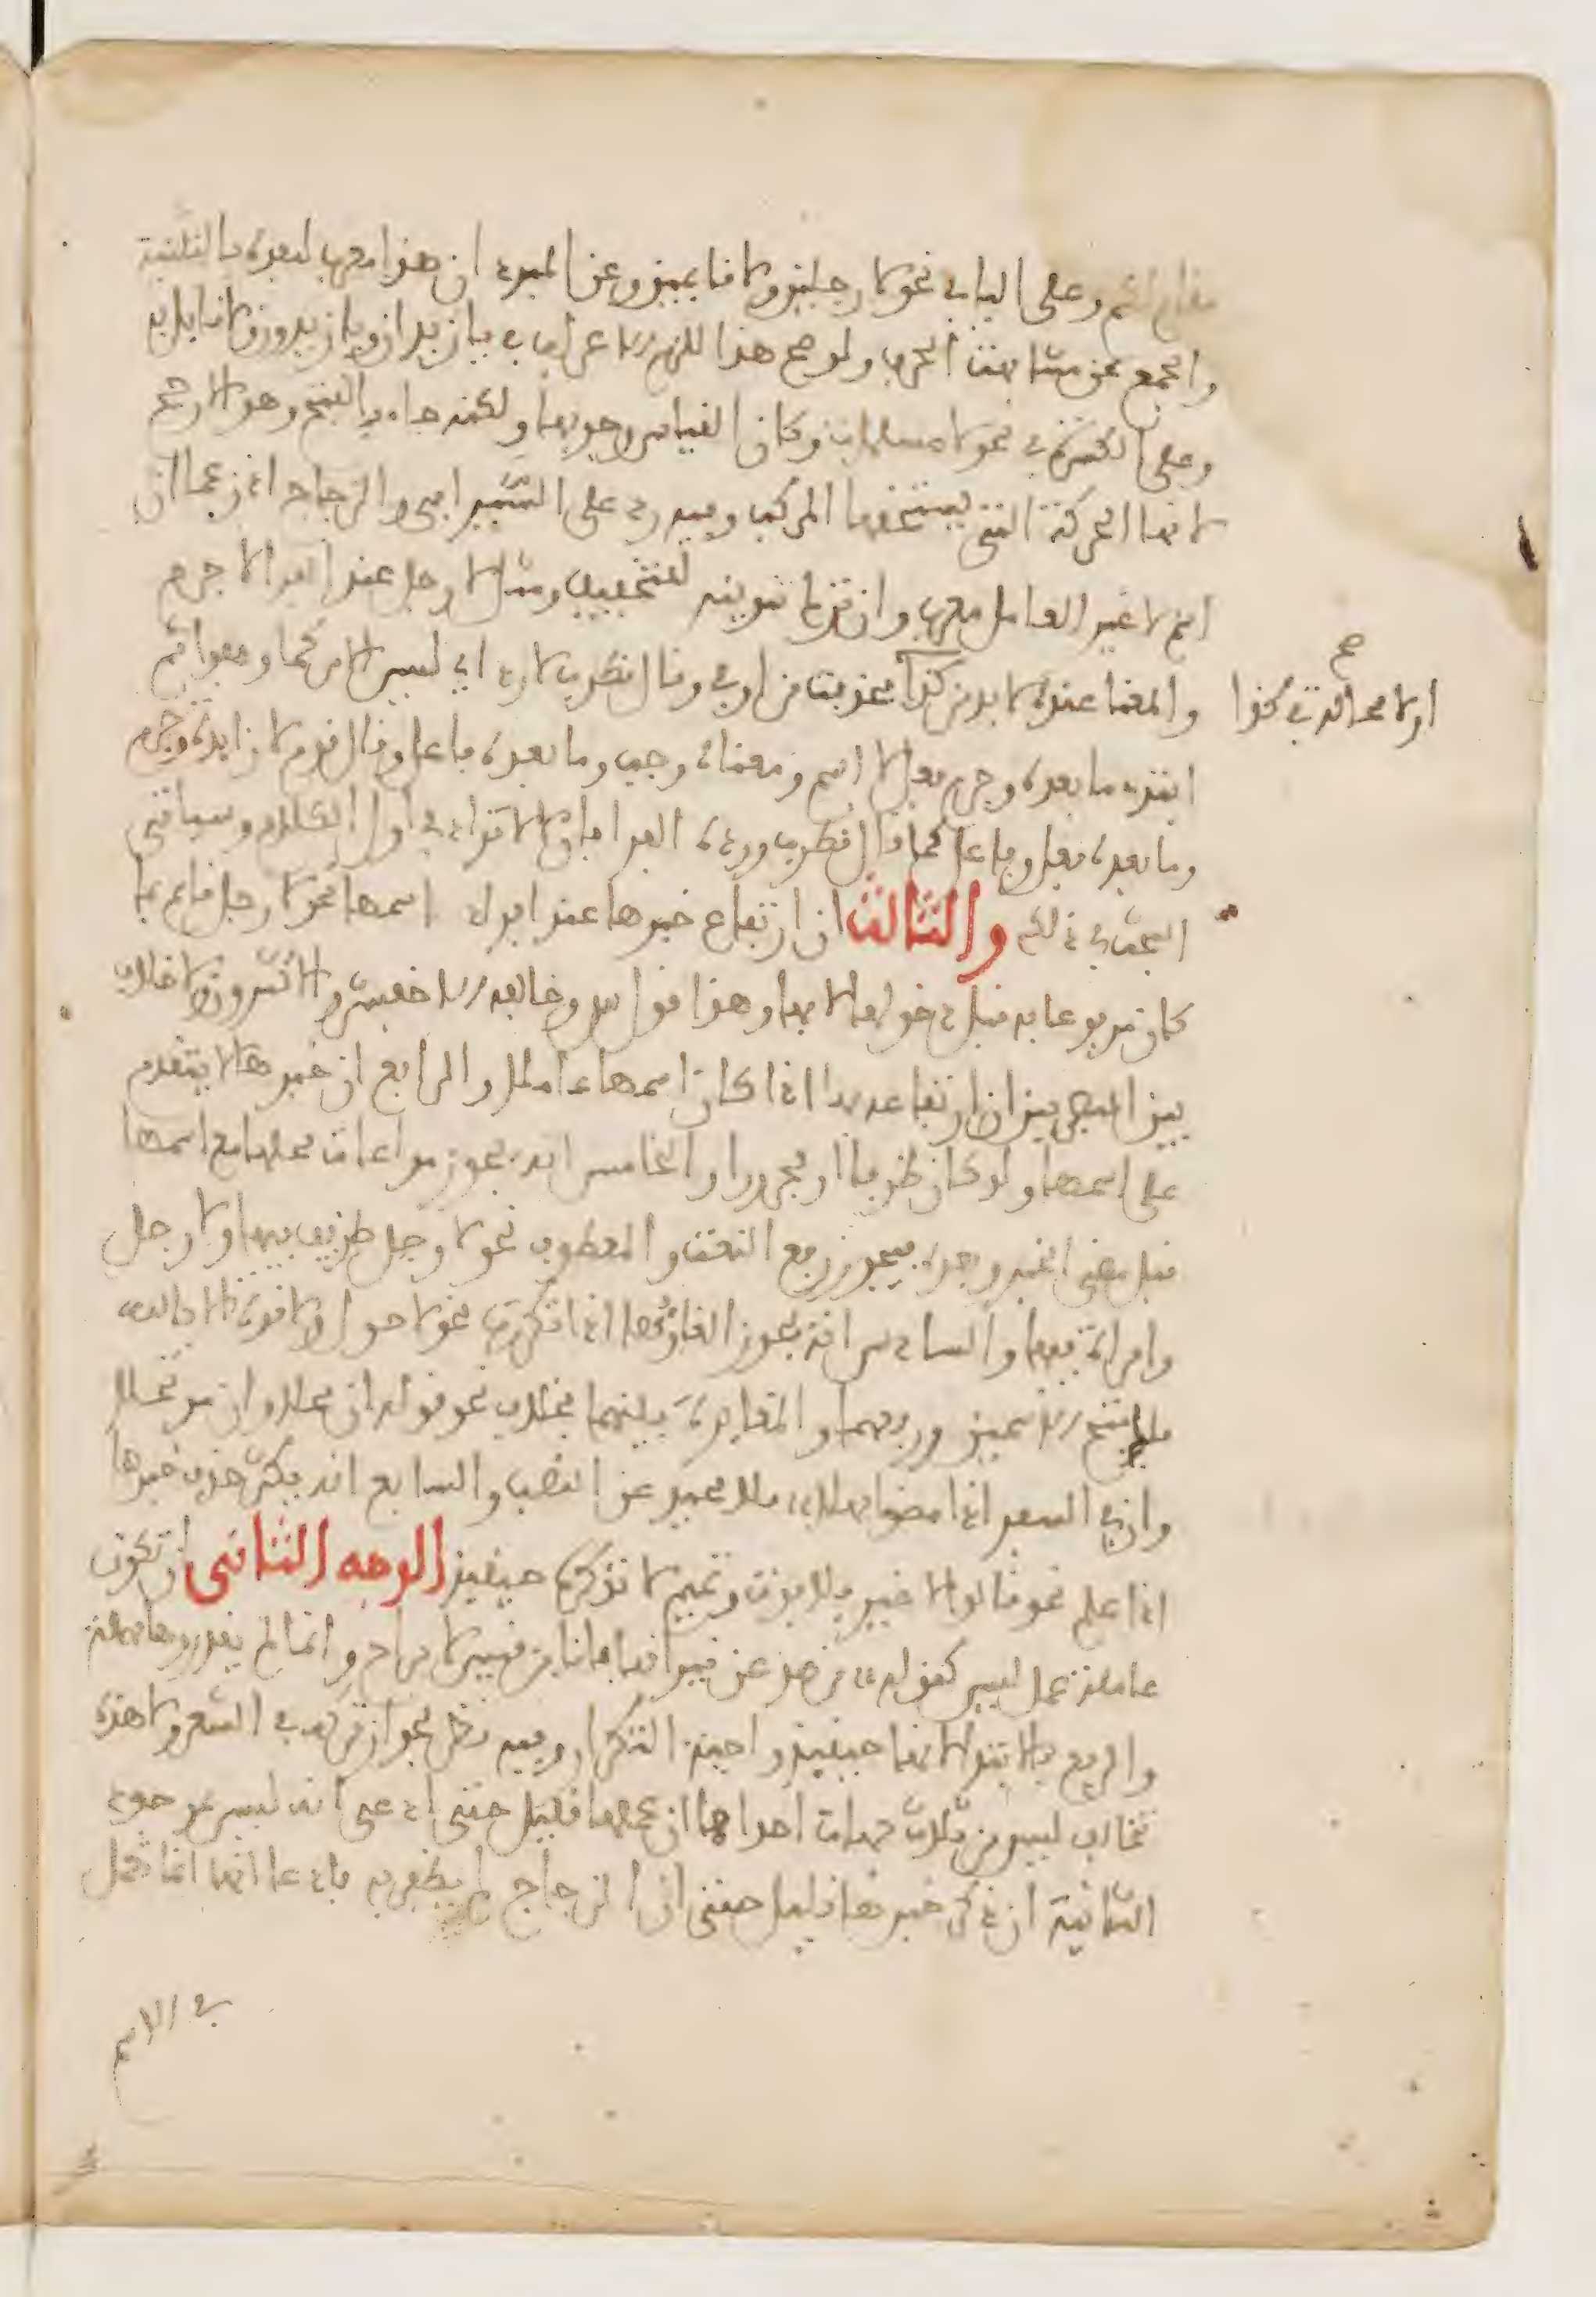 وعلى الياء في نحو لا رجلين ولا قائمين وعن المبرد ان هذا معرب لبعده بالتثنية
والجمع عن مشابهة الحرف ولو صح هذا للزم الاعراب في يا زيدان ويا زيدون ولا قايل به
وعلى الكسرة في نحو لا مسلمات وكان القياس وجوبها ولكنه جاء بالفتح وهو الارجح
لانها الحركة التي يستحقها المركب وفيه رد على السيرافي والزجاج اذ زعما ان
اسم لا غير العامل معرب وان ترك تنوينه للتخفيف ومثل لا رجل عند الفرا لا جرم
والمعنا عنده لا بد من كذا فحذفت من او في وقال قطرب لا رد اي ليس الامر كما وصفوا ثم
او لا محالة في كذا
صح
ابتدء ما بعده وجرم فعل لا اسم ومعناه وجب وما بعده فاعل وقال قوم لا زايدة وجرم
وما بعده فعل وفاعل كما قال قطرب ورده الفرا بان لا لا تزاد في اول الكلام وسياتي
البحث في ذلك والثالث ان ارتفاع خبرها عند افراد اسمها نحو لا رجل قايم بما
كان مرفوعا به قبل دخولها لا بها وهذا قول س وخالفه الاخفش والاكثرون ولا خلاف
بين البصريين ان ارتفاعه بها اذا كان اسمها عاملا والرابع ان خبرها لا يتقدم
على اسمها ولو كان ظرفا او مجرورا والخامس انه يجوز مراعات محلها مع اسمها
قبل مضي الخبر وبعده فيجوز رفع النعت والمعطوف نحو لا رجل ظريف فيها ولا رجل
وامراة فيها والسادس انه يجوز الغاؤها اذا تكررت نحو لا حول ولا قوة الا بالله
فلك فتح الاسمين ورفعهما والمغايرة بينهما بخلاف نحو قوله ان محلا وان مرتحلا
وان في السفر اذا مضوا مهلا فلا محيد عن النصب والسابع انه يكثر حذف خبرها
اذا علم نحو قالوا لا ضير فلا فوت وتميم لا تذكره حينيذ الوجه الثاني ان تكون
عاملة عمل ليس كقوله من صد عن نيرانها فانا ابن قيس لا براح وانما لم يقدروها مهملة
والرفع بالابتدا لانها حينيذ واجبة التكرار وفيه نظر لجواز تركه في الشعر ولا هذه
تخالف ليس من ثلاث جهات احداها ان عملها قليل حتى ادعى انه ليس بموجود
الثانية ان ذكر خبرها قليل حتى ان الزجاج لم يظفر به فادعا انها انما تعمل
في الاسم